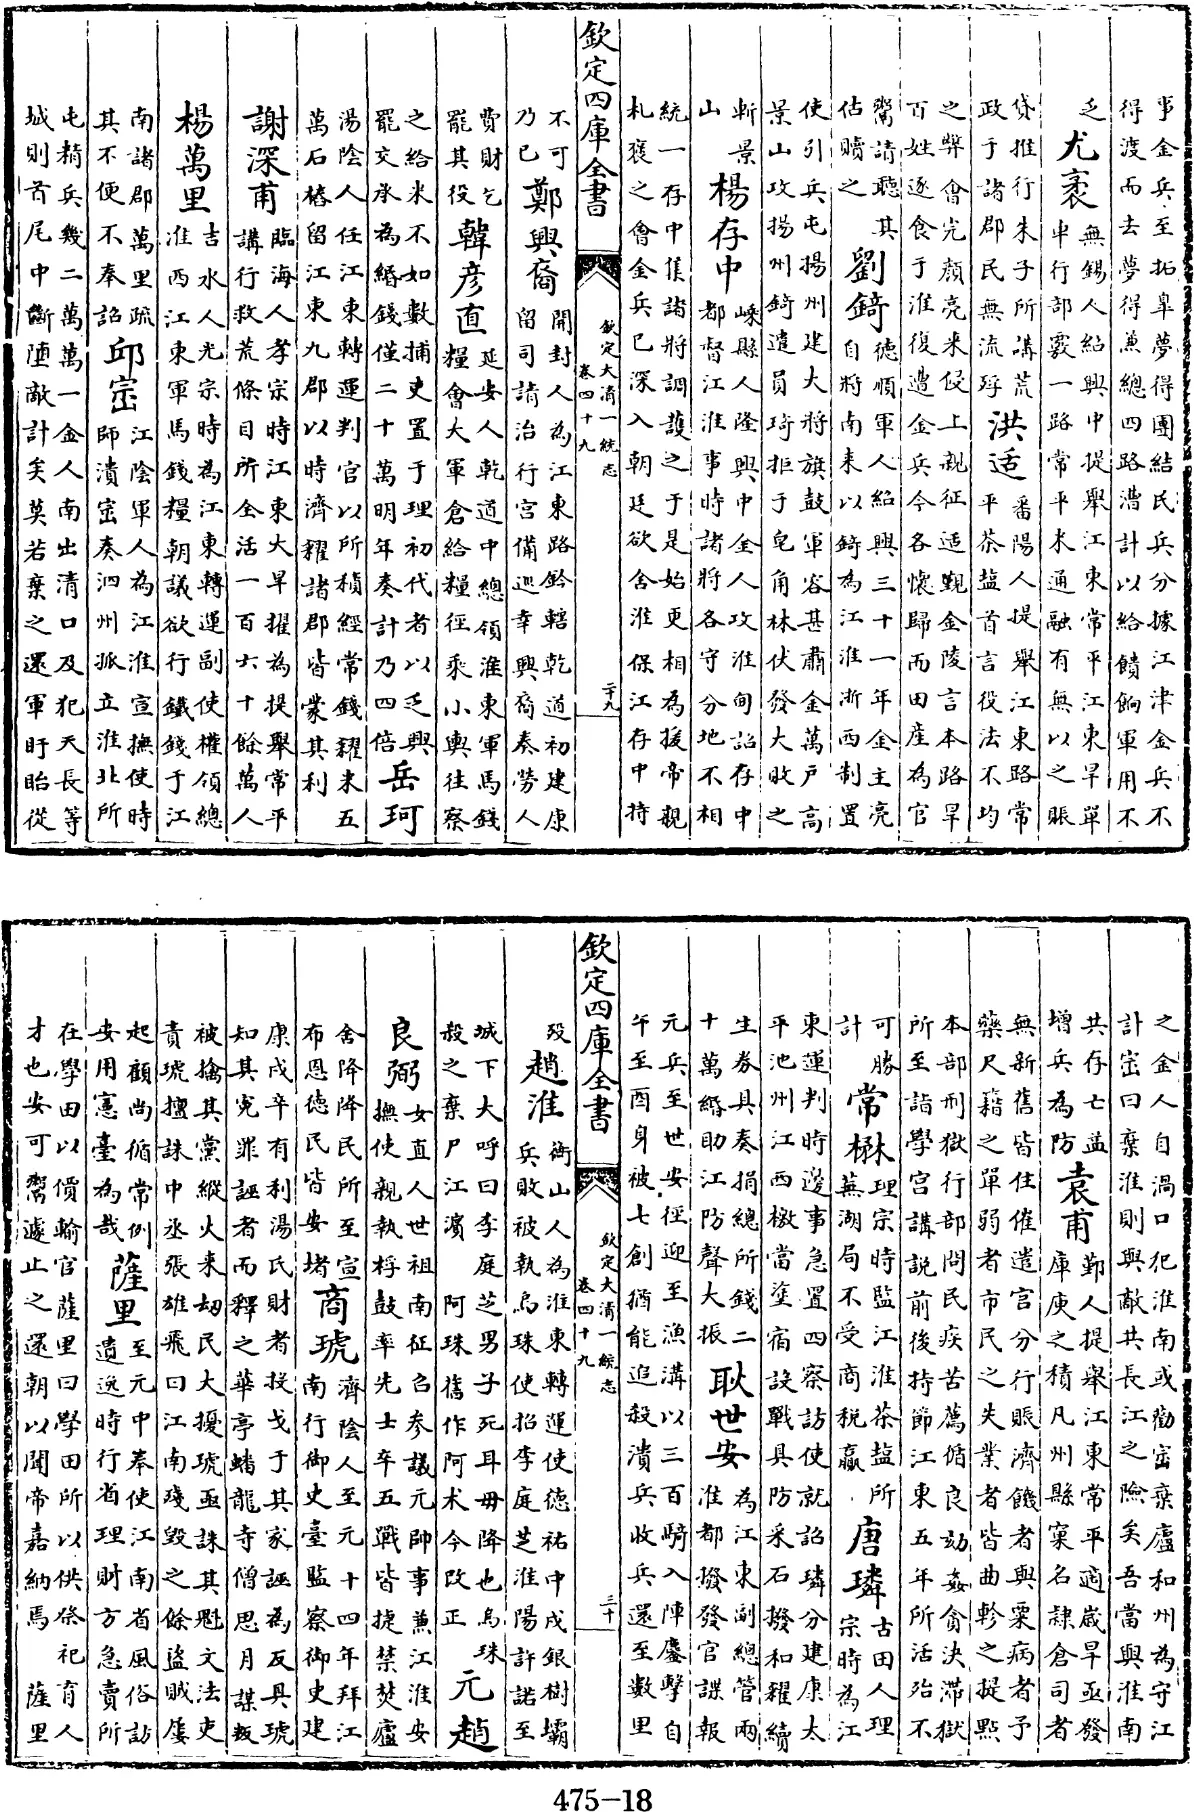 事金兵至拓臯夢得團結民兵分據江津金兵不
得渡而去夢得兼總四路漕計以給饋餉軍用不
乏 尤袤 無錫人紹興中提舉江東常平江東旱單
車行部覈一路常平米通融有無以之賑
貸推行朱子所講荒
政于諸郡民無流殍 洪适 番陽人提舉江東路常
平茶鹽首言役法不均
之弊會完顏亮來侵上親征适覲金陵言本路旱
百姓逐食于淮復遭金兵今各懷歸而田產為官
鬻請聽其
估贖之 劉錡 德順軍人紹興三十一年金主亮
自將南来以錡為江淮浙西制置
使引兵屯揚州建大將旗鼓軍容甚肅金萬戶高
景山攻揚州錡遣員琦拒于皂角林伏發大敗之
斬景
山 楊存中 嵊縣人隆興中金人攻淮甸詔存中
都督江淮事時諸將各守分地不相
統一存中集諸將調護之于是始更相為援帝親
札襃之會金兵已深入朝廷欲舍淮保江存中持
欽定四庫全書
欽定大清一統志
卷四十九
二十九
不可
乃已 鄭興裔 開封人為江東路鈐轄乾道初建康
留司請治行宮備巡幸興裔奏勞人
費財乞
罷其役 韓彦直 延安人乾道中總領淮東軍馬錢
糧會大軍倉給糧徑乘小輿往察
之給米不如數捕吏置于理初代者以乏興
罷交承為緡錢僅二十萬明年奏計乃四倍 岳珂
湯陰人任江東轉運判官以所積經常錢糴米五
萬石樁留江東九郡以時濟糴諸郡皆蒙其利
謝深甫 臨海人孝宗時江東大旱擢為提舉常平
講行救荒條目所全活一百六十餘萬人
楊萬里 吉水人光宗時為江東轉運副使權領總
淮西江東軍馬錢糧朝議欲行鐵錢于江
南諸郡萬里疏
其不便不奉詔 邱崈 江陰軍人為江淮宣撫使時
師潰崈奏泗州孤立淮北所
屯精兵幾二萬萬一金人南出清口及犯天長等
城則首尾中斷墮敵計矣莫若棄之還軍盱眙從
之金人自渦口犯淮南或勸崈棄廬和州為守江
計崈曰棄淮則與敵共長江之險矣吾當與淮南
共存亡益
增兵為防 袁甫 鄞人提舉江東常平適歲旱亟發
庫庾之積凡州縣窠名隷倉司者
無新舊皆住催遣官分行賑濟饑者與粟病者予
藥尺籍之單弱者市民之失業者皆曲軫之提點
本部刑獄行部問民疾苦薦循良劾姦貪決滯獄
所至詣學宮講說前後持節江東五年所活殆不
可勝
計 常楙 理宗時監江淮茶鹽所
蕪湖局不受商稅贏 唐璘 古田人理
宗時為江
東運判時邊事急置四察訪使就詔璘分建康太
平池州江西檄當塗宿設戰具防采石撥和糴續
生券具奏捐總所錢二
十萬緡助江防聲大振 耿世安 為江東副總管兩
淮都撥發官諜報
元兵至世安徑迎至漁溝以三百騎入陣鏖擊自
午至酉身被七創猶能追殺潰兵收兵還至數里
欽定四庫全書
欽定大清一統志
卷四十九
三十
歿 趙淮 衡山人為淮東轉運使德祐中戍銀樹壩
兵敗被執烏珠使招李庭芝淮陽許諾至
城下大呼曰李庭芝男子死耳毋降也烏珠
殺之棄尸江濱 阿珠舊作阿术今改正 元趙
良弼 女直人世祖南征召参議元帥事兼江淮安
撫使親執桴鼓率先士卒五戰皆捷禁焚廬
舍降降民所至宣
布恩德民皆安堵 商琥 濟陰人至元十四年拜江
南行御史臺監察御史建
康戍卒有利湯氏財者投戈于其家誣為反具琥
知其冤罪誣者而釋之華亭蟠龍寺僧思月謀叛
被擒其黨縱火来刼民大擾琥亟誅其魁文法吏
責琥擅誅中丞張雄飛曰江南殘毀之餘盜賊屢
起顧尚循常例
安用憲臺為哉 薩里 至元中奉使江南省風俗訪
遺逸時行省理財方急賣所
在學田以價輸官薩里曰學田所以供祭祀育人
才也安可鬻遽止之還朝以聞帝嘉納焉 薩里
475-18